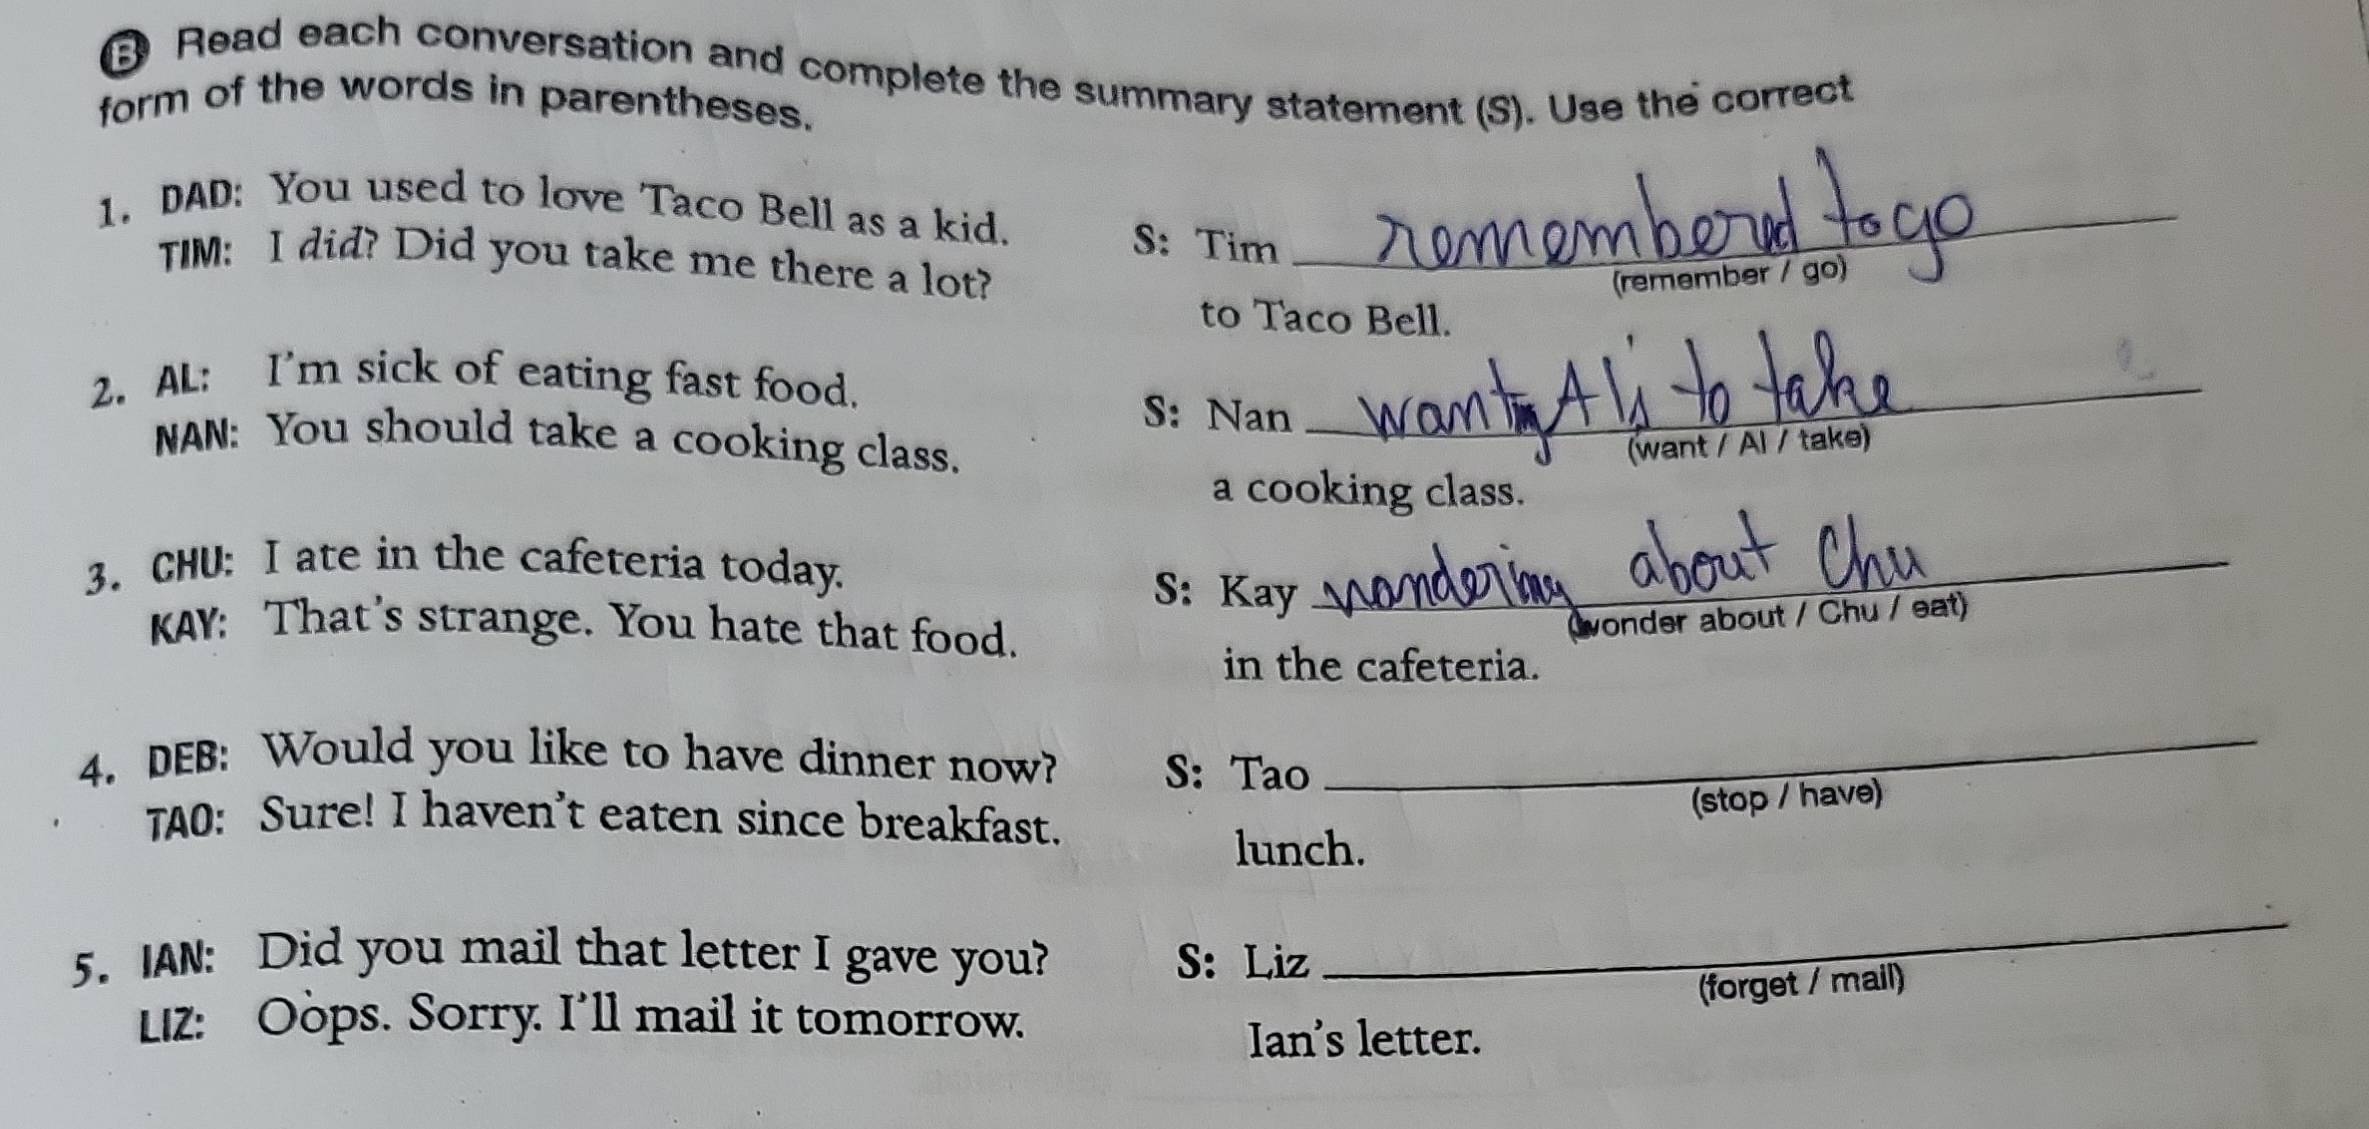 B Read each conversation and complete the summary statement (S). Use the correct
form of the words in parentheses.
1. DAD: You used to love Taco Bell as a kid.
TIM: I did? Did you take me there a lot?
S: Tim remembered to go
(remember / go)
to Taco Bell.
2. AL: I'm sick of eating fast food.
NAN: You should take a cooking class.
S: Nan wanting Al's to take
(want / Al / take)
a cooking class.
3. CHU: I ate in the cafeteria today.
KAY: That's strange. You hate that food.
S: Kay wondering about Chu
(wonder about / Chu / eat)
in the cafeteria.
4. DEB: Would you like to have dinner now?
TAO: Sure! I haven't eaten since breakfast.
S: Tao
(stop / have)
lunch.
5. IAN: Did you mail that letter I gave you?
LIZ: Oops. Sorry. I'll mail it tomorrow.
S: Liz
(forget / mail)
Ian's letter.